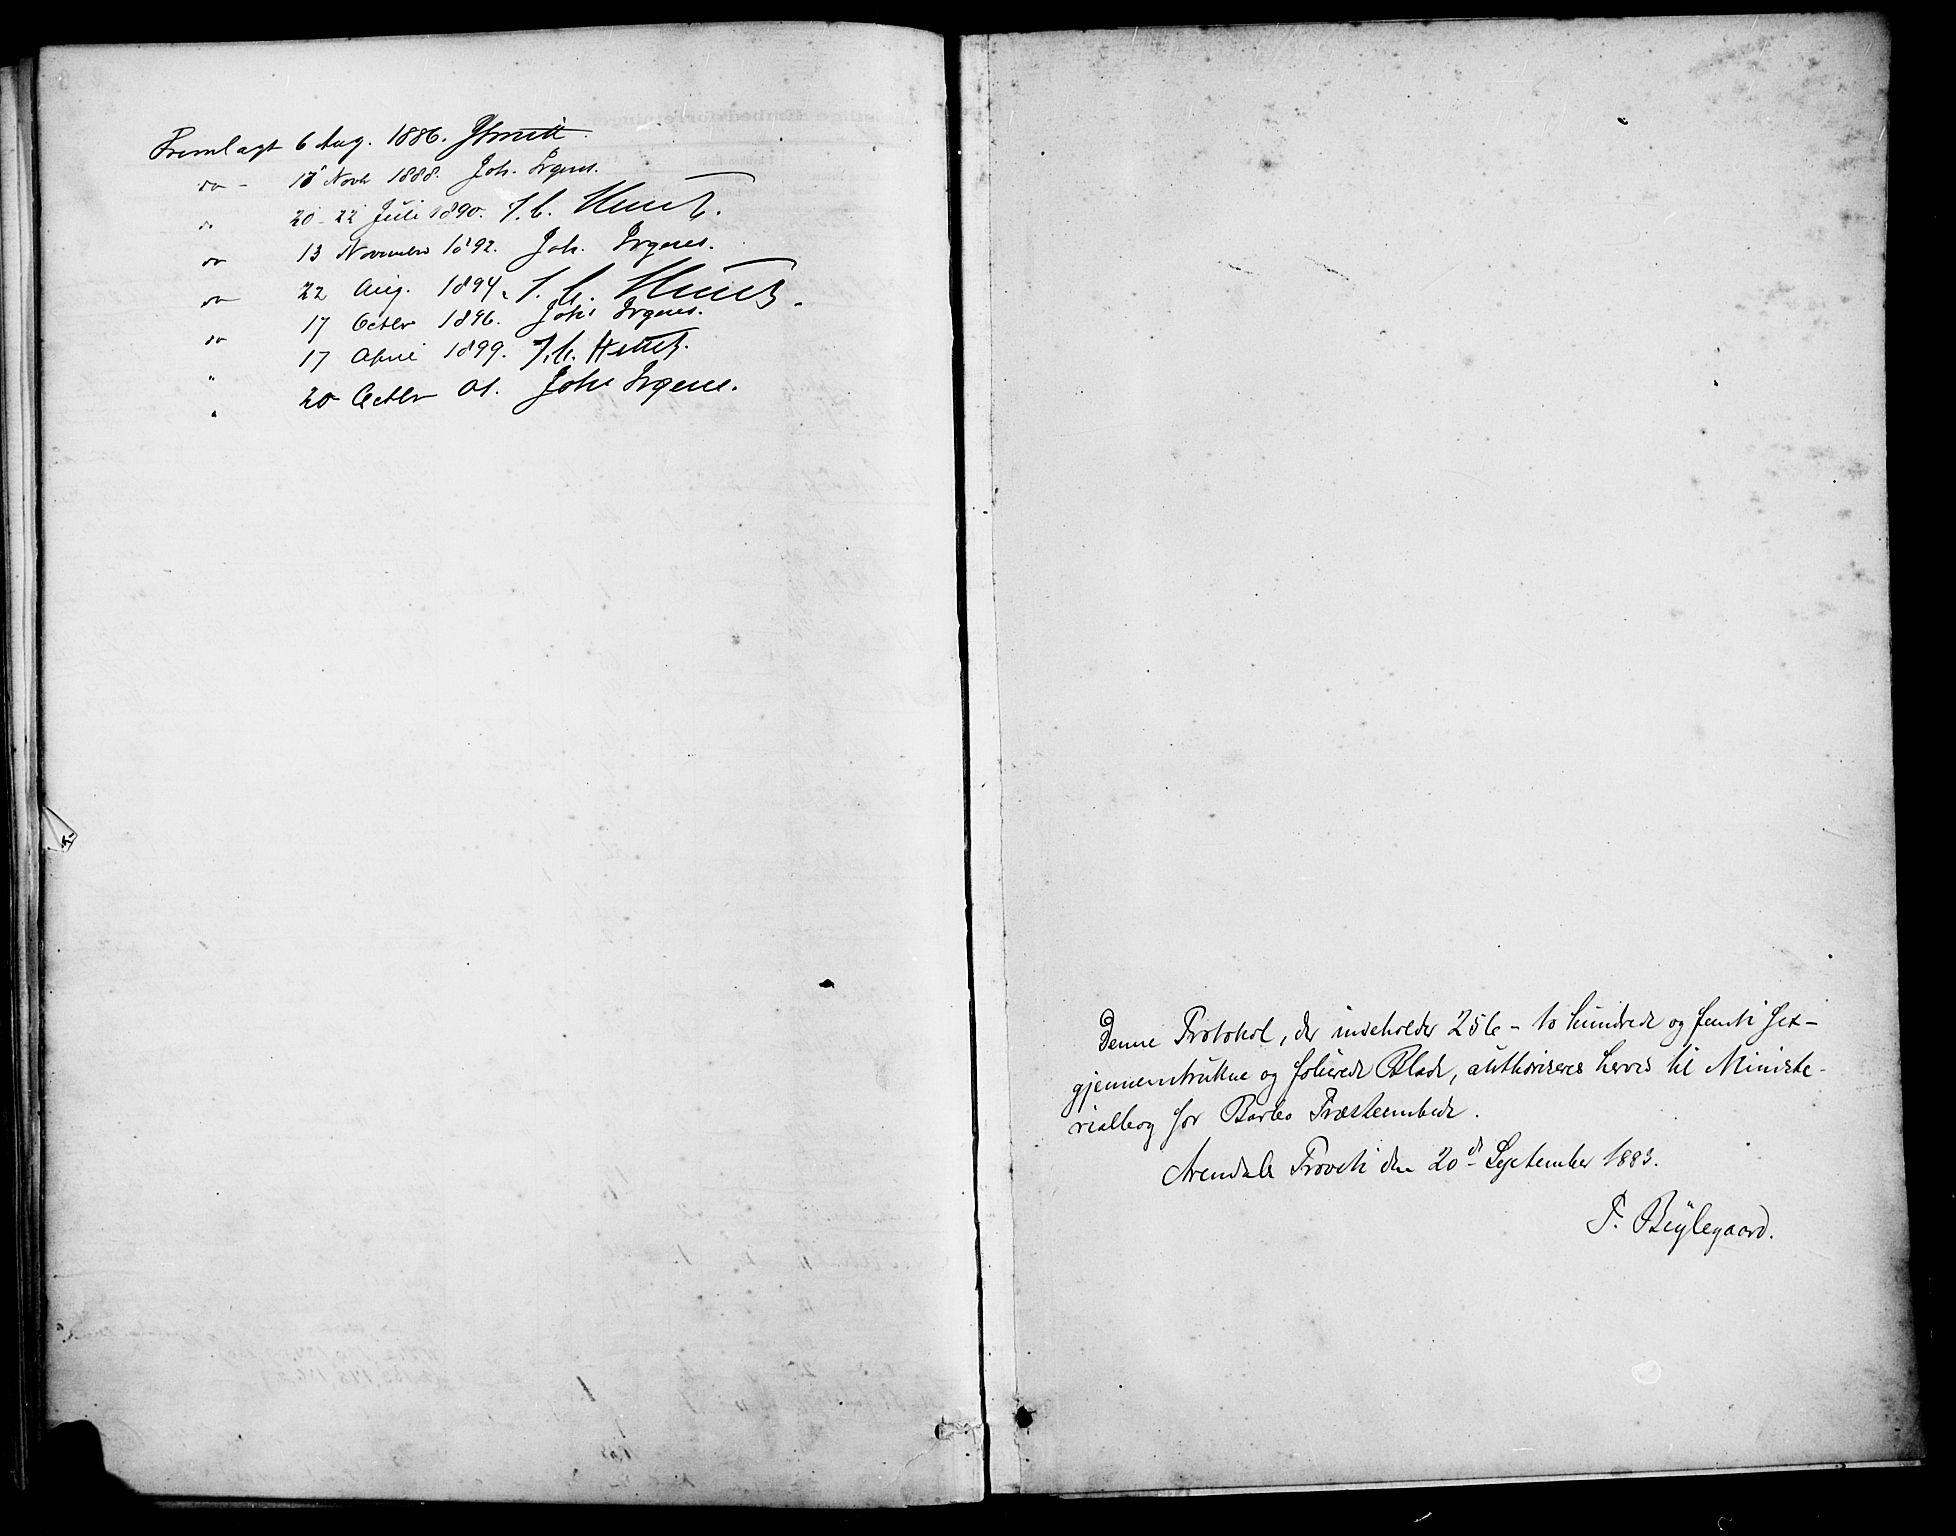 Fremlagt 6 Aug. 1886.
do - 18 Novb 1888. Joh. Irgens.
do 20-22 Juli 1890. J. C. Heuch.
do 13 Novembr 1892. Joh. Irgens.
do 22 Aug. 1894. J. C. Heuch.
do 17 Octbr 1896. Johs Irgens.
" 17 April 1899. J. C. Heuch.
" 20 Octbr 01. Johs Irgens.
Denne Protokol, der indeholder 256 - to hundrede og femti sex -
gjennemtrukne og folierede Blade, authoriseres herved til Ministe-
rialbog for Barbo Præsteembede.
Arendals Provsti den 20d September 1883.
P. Bøylegaard.